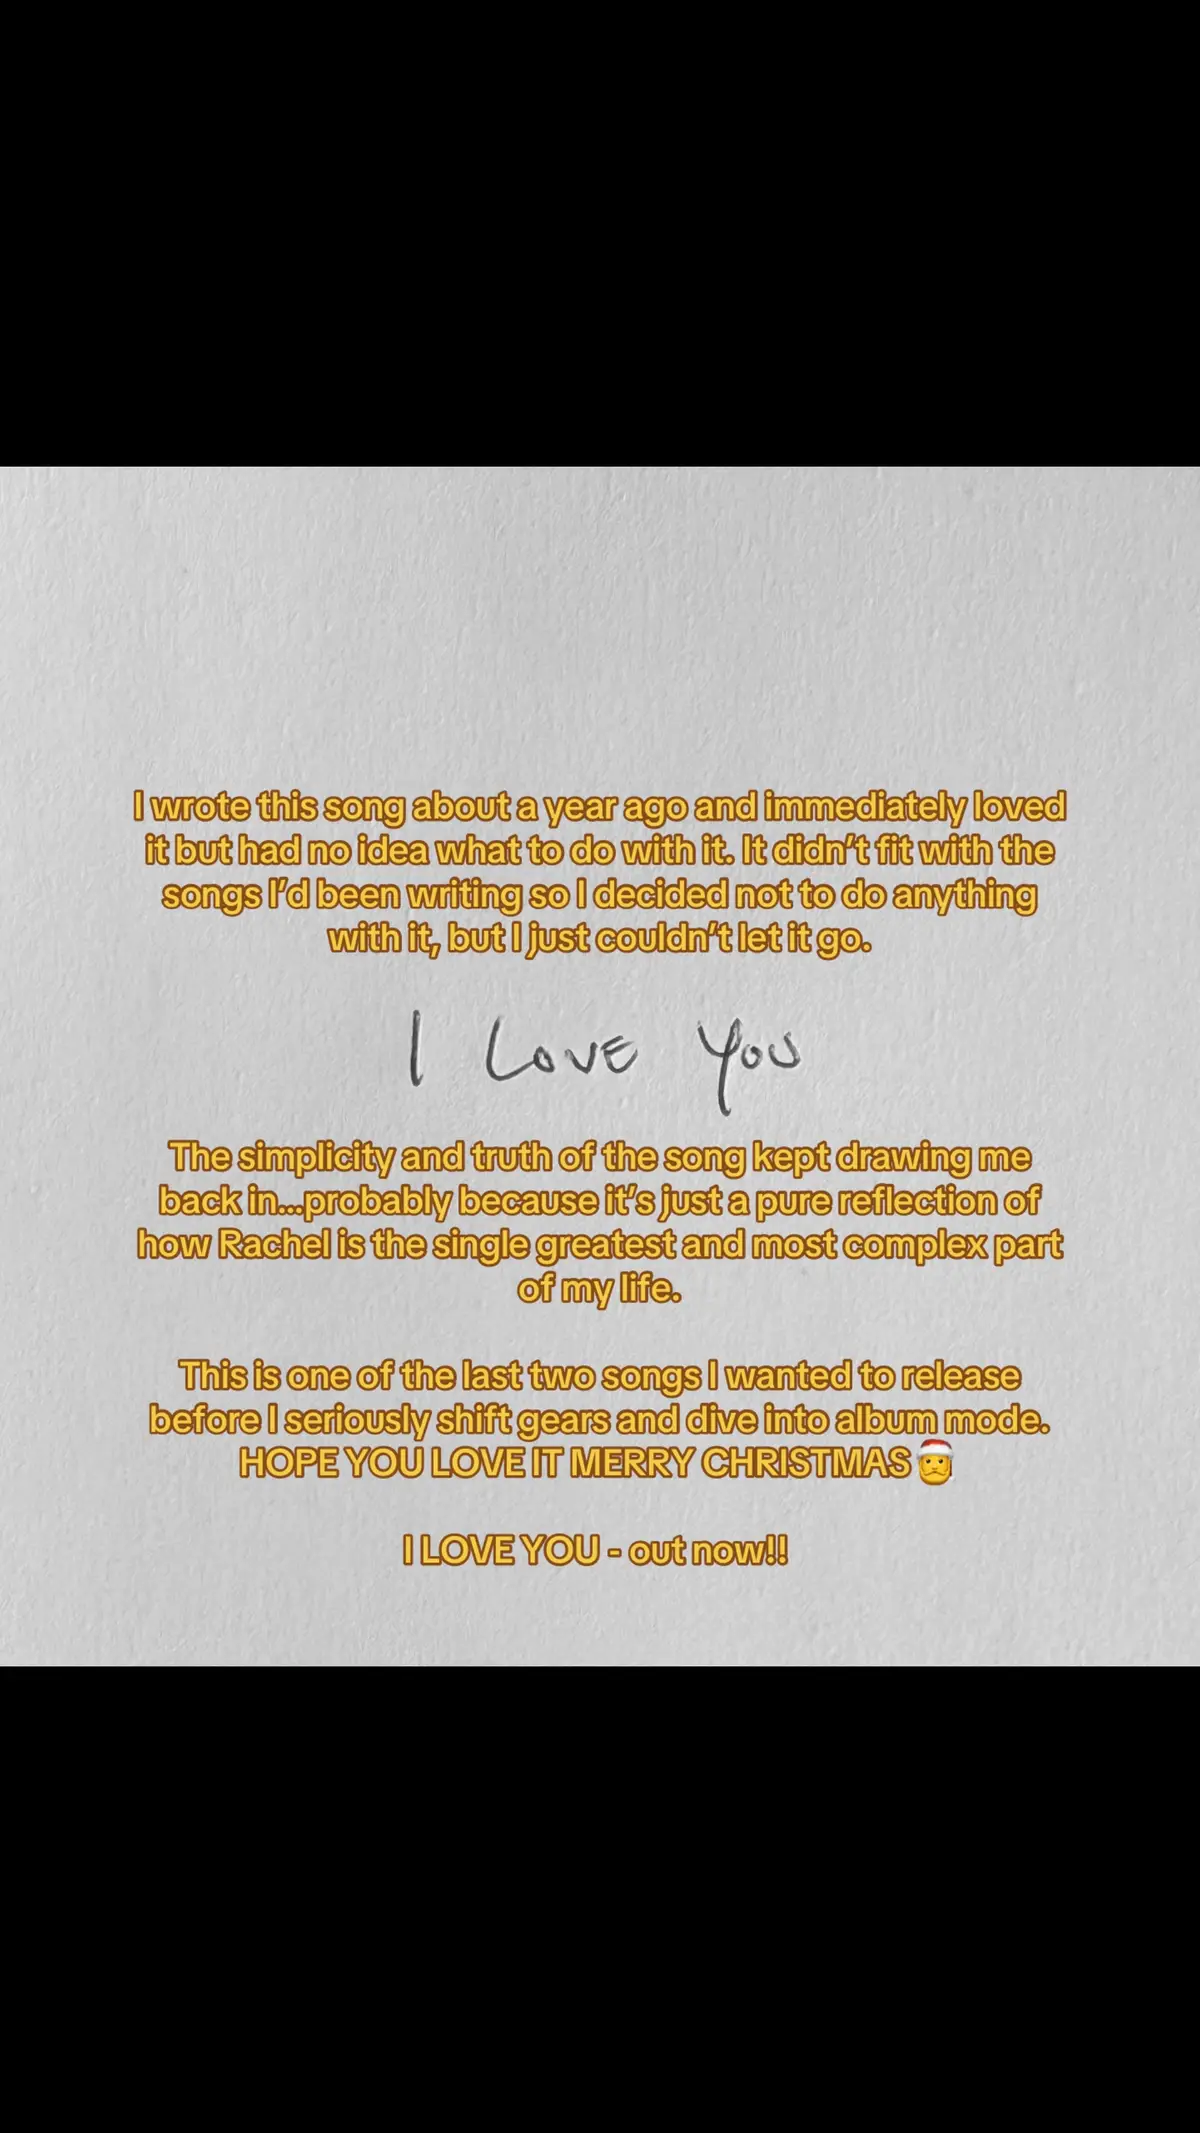 I wrote this song about a year ago and immediately loved
it but had no idea what to do with it. It didn't fit with the
songs I'd been writing so I decided not to do anything
with it, but I just couldn't let it go.
I LOVE YOU
The simplicity and truth of the song kept drawing me
back in...probably because it's just a pure reflection of
how Rachel is the single greatest and most complex part
of my life.
This is one of the last two songs I wanted to release
before I seriously shift gears and dive into album mode.
HOPE YOU LOVE IT MERRY CHRISTMAS 🎅
I LOVE YOU - out now!!